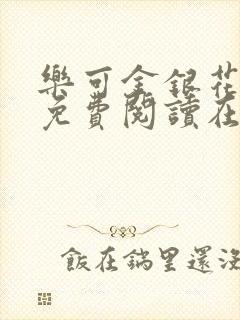 樂可金銀花
免費閱讀在
飯在鍋里還沒